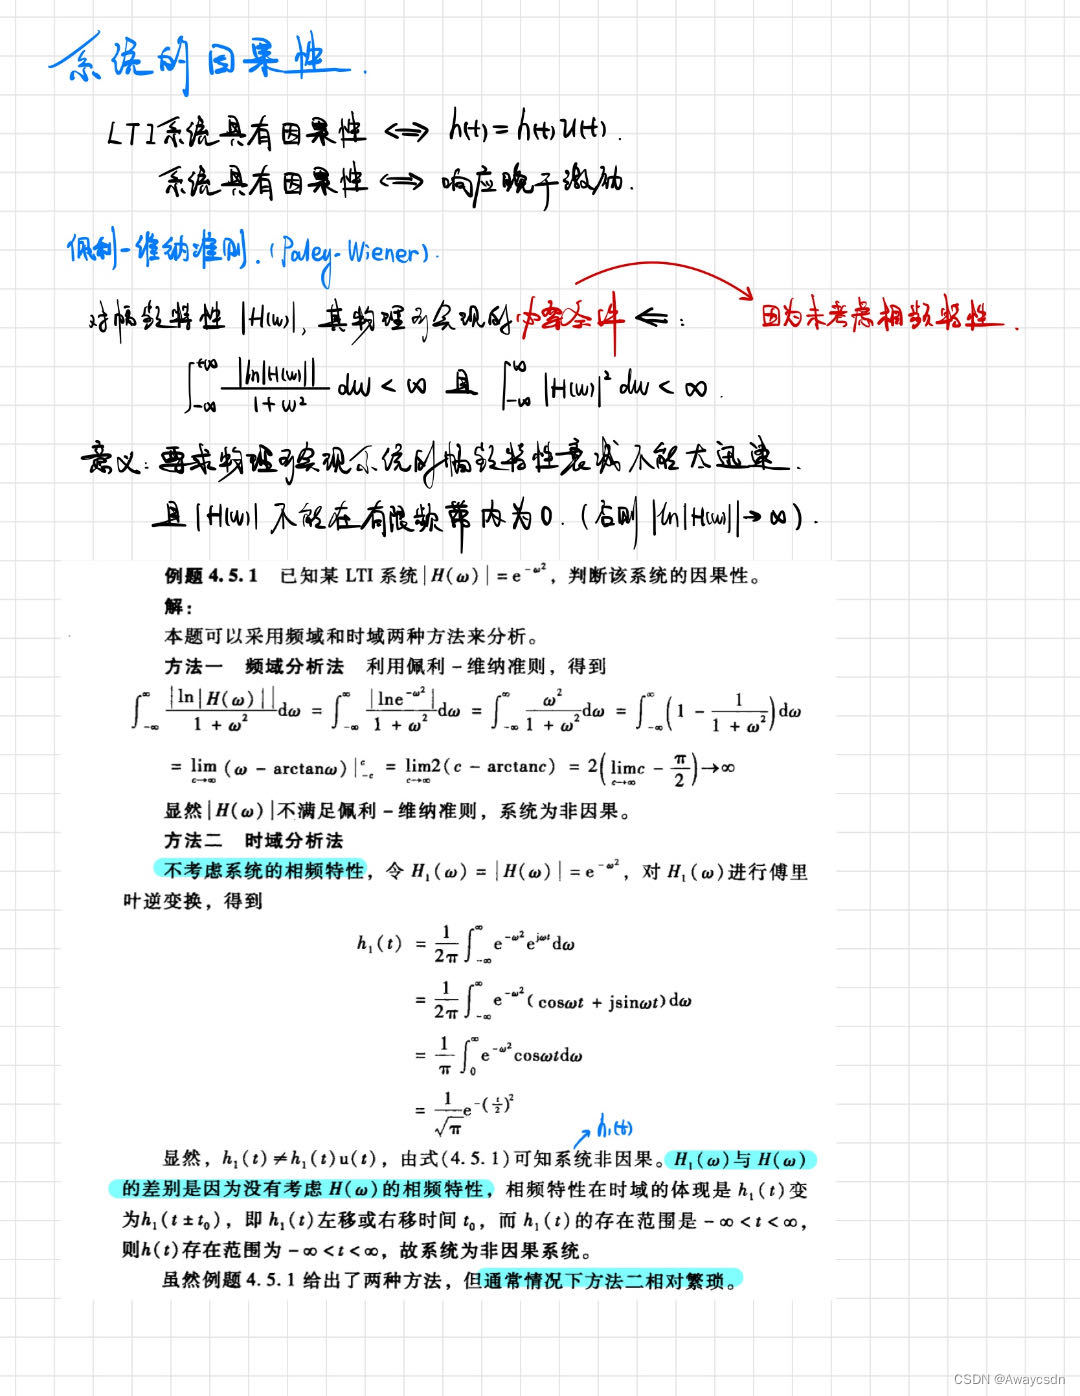 系统的因果性.
LTI系统具有因果性 ⟺ h(t)=h(t)u(t).
系统具有因果性 ⟺ 响应晚于激励.
佩利-维纳准则.(Paley-Wiener).
对幅频特性 |H(ω)|, 其物理可实现的必要条件 ⟸: 因为未考虑相频特性.
∫_{-∞}^{+∞} |ln|H(ω)||/(1+ω²) dω < ∞ 且 ∫_{-∞}^{∞} |H(ω)|² dω < ∞.
意义: 要求物理可实现系统的幅频特性衰减不能太迅速.
且 |H(ω)| 不能在有限频带内为0.(否则 |ln|H(ω)||→∞).
例题 4.5.1 已知某 LTI 系统|H(ω)|=e^{-ω²}，判断该系统的因果性。
解：
本题可以采用频域和时域两种方法来分析。
方法一 频域分析法 利用佩利-维纳准则，得到
∫_{-∞}^{∞} |ln|H(ω)||/(1+ω²) dω = ∫_{-∞}^{∞} |lne^{-ω²}|/(1+ω²) dω = ∫_{-∞}^{∞} ω²/(1+ω²) dω = ∫_{-∞}^{∞} (1 - 1/(1+ω²)) dω
= lim_{c→∞} (ω - arctanω)|_{-c}^{c} = lim_{c→∞} 2(c - arctanc) = 2(lim_{c→∞} c - π/2)→∞
显然|H(ω)|不满足佩利-维纳准则，系统为非因果。
方法二 时域分析法
不考虑系统的相频特性，令 H₁(ω)=|H(ω)|=e^{-ω²}，对 H₁(ω)进行傅里
叶逆变换，得到
h₁(t) = 1/2π ∫_{-∞}^{∞} e^{-ω²}e^{jωt}dω
= 1/2π ∫_{-∞}^{∞} e^{-ω²}(cosωt + jsinωt)dω
= 1/π ∫_{0}^{∞} e^{-ω²}cosωtdω
= 1/√π e^{-(t/2)²}
h₁(t)
显然，h₁(t)≠h₁(t)u(t)，由式(4.5.1)可知系统非因果。H₁(ω)与 H(ω)
的差别是因为没有考虑 H(ω)的相频特性，相频特性在时域的体现是 h₁(t)变
为h₁(t±t₀)，即 h₁(t)左移或右移时间 t₀，而 h₁(t)的存在范围是 -∞<t<∞，
则h(t)存在范围为 -∞<t<∞，故系统为非因果系统。
虽然例题 4.5.1 给出了两种方法，但通常情况下方法二相对繁琐。
CSDN @Awaycsdn